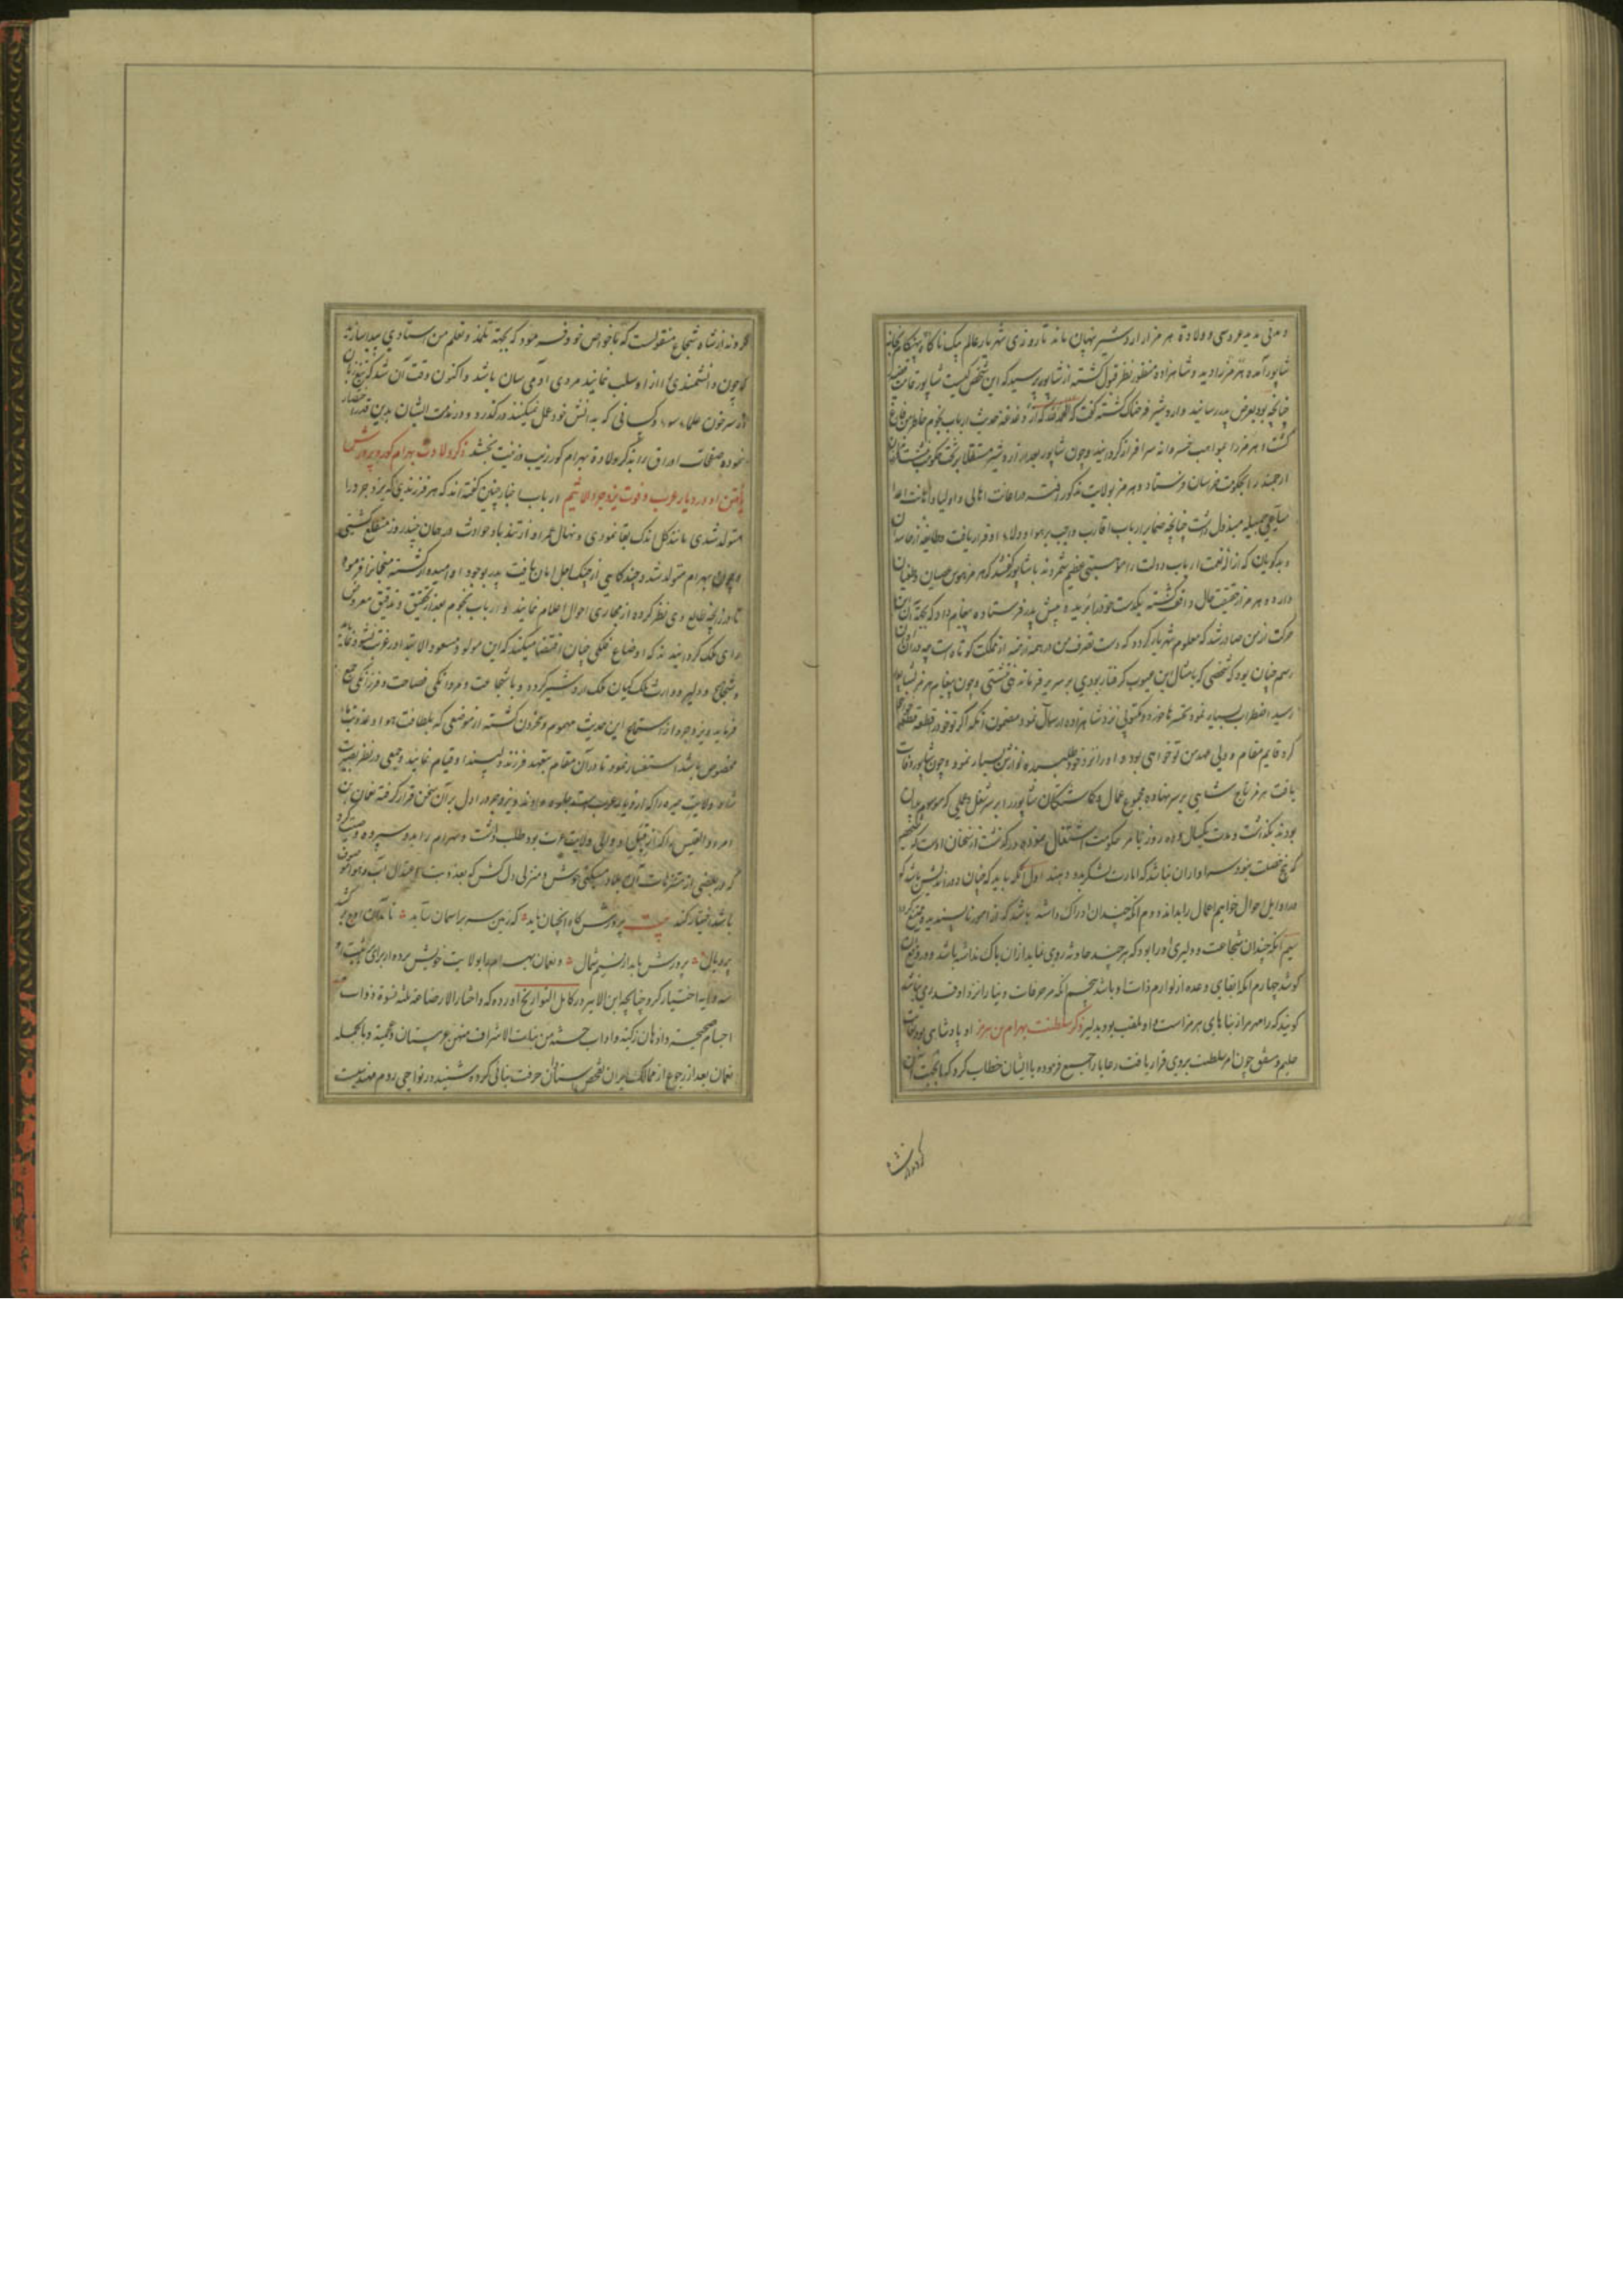 و مدتی مدید عروسی و ولادة هرمز از اردشیر پنهان ماند تا روزی شهریار عالم بیک ناکاه بخانه
شاپور آمده هرمز را دید و شاهزاده منظور نظر قبول کشته از شاپور پرسید که این شخص کیست شاپور
چنانچه بود بعرض پدر رسانید و اردشیر فرحناک کشته کفت که الحمد لله که از دغدغه حدیث ارباب نجوم خاطر من فارغ
کشت و هرمز را بمواهب خسروانه سرافراز کردانید و چون شاپور بعد از اردشیر مستقلا بر تخت حکومت نشست
ارجمند را بحکومت خراسان فرستاد و هرمز بولایت مذکور رفته در اعانت اهالی و اولیا و اهانت اعدا
مساعی جمیله مبذول داشت چنانچه ضمایر ارباب اقارب و اجانب بر هوا و ولاء او قرار یافت و طایفه از حاسدان
و بدکویان که از نعمت ارباب دولت را مصیبتی عظیم شمرند با شاپور کفتند که هرمز هوس عصیان و طغیان
دارد و هرمز از حقیقت حال واقف کشته یکدست خود را بریده پیش پدر فرستاده پیغام داد که بجهة آن این
حرکت از من صادر شد که معلوم شهریار کردد که دست تصرف من در همه ازمنه از مملکت کوتاه است چه در آن زمان
رسم چنان بود که شخصی که بامثال این عیوب کرفتار بودی بر سریر فرماندهی ننشستی و چون پیغام هرمز بشاپور
رسید اضطراب بسیار نمود تحسرها خورده مکتوبی نزد شاهزاده ارسال نمود مضمون آنکه اکر تو خود را قطعه قطعه
کرد قایم مقام و ولی عهد من تو خواهی بود و او را نزد خود طلبیده نوازش بسیار نمود و چون شاپور وفات
یافت هرمز تاج شاهی بر سر نهاده مجموع عمال و کماشتکان شاپور را بر سر شغل و عملی که موسوم بدان
بودند بکذاشت و مدت یکسال و ده روز بامر حکومت اشتغال نموده درکذشت از سخنان اوست که
که پنج خصلت نبود سزاوار آن نباشد که امارت لشکر بدو دهند اول آنکه باید که چنان دوراندیش باشد که
در اوایل احوال خواتیم اعمال را بداند دوم آنکه چندان ادراک داشته باشد که از امور ناپسندیده
سیم آنکه چندان شجاعت و دلیری او را بود که هر چند حادثه روی نماید از آن باک نداشته باشد و در
کوشد چهارم آنکه ایفای وعده از لوازم ذات او باشد پنجم آنکه مزخرفات دنیا را نزد او قدری نباشد
کویند که رامهرمز از بناهای هرمز است و او ملقب بود بدلیر ذکر سلطنت بهرام بن هرمز او پادشاهی بود
حلیم و مشفق چون امر سلطنت بر وی قرار یافت رعایا را جمع فرموده با ایشان خطاب کرد که
کرد و از شاه شجاع منقولست که با خواص خود فرموده که بجهة تلمذ و تعلم من استادی پیدا سازند
که چون دانشمندی را از او سلب نمایند مردی آدمی سان باشد و اکنون وقت آن شد که
از سر خون علماء سوء و کسانی که بدانش خود عمل نمیکنند درکذرد و در مذمت ایشان بدین قدر اختصار
نموده صفحات اوراق را بذکر ولادة بهرام کور زیب و زینت بخشد ذکر ولادت بهرام کور و پرورش
یافتن او در دیار عرب و فوت یزدجرد الاثیم ارباب اخبار چنین کفته اند که هر فرزندی که یزدجرد را
متولد شدی مانند کل اندک بقا نمودی و نهال عمر او از تندباد حوادث در جهان چند روز منقطع کشتی
و چون بهرام متولد شد و چندکاهی از چنک اجل امان یافت پدر بوجود او امیدوار کشته منجمان را فرمود
تا در زایچه طالع وی نظر کرده از مجاری احوال اعلام نمایند و ارباب نجوم بعد از تحقیق و تدقیق معروض
رای ملک کردانیدند که اوضاع فلکی چنان اقتضا میکند که این مولود مسعود الابتدا در غربت نشو و نما یابد
و شجاع و دلیر و وارث ملک کیان ملک اردشیر کردد و با شجاعت و مردانکی فصاحت و فرزانکی جمع
فرماید و یزدجرد از استماع این حدیث مهموم و محزون کشته از موضعی که بلطافت هوا و عذوبت ماء
مخصوص باشد استفسار نمود تا در آن مقام بتعهد فرزند دلپسند او قیام نمایند و جمعی در نظر بصیرت
شاه ولایت حیره را که از دیار عرب است جلوه دادند و یزدجرد را دل بر آن سخن قرار کرفته نعمان بن
امرء القیس را که از قبل او والی ولایت عرب بود طلب داشت و بهرام را بدو سپرده وصیت کرد
که در بعضی از متنزهات آن بلاد مسکنی خوش و منزلی دلکش که بعذوبت و اعتدال آب و هوا موصوف
باشد اختیار کند بیت پرورش کاه آنچنان باید که زمین سر بر آسمان ساید تا در آن اوج بر کشد
پر و بال پرورش یابد از نسیم شمال و نعمان بهرام را بولایت خویش برده از برای تربیت او
سه دایه اختیار کرد چنانچه ابن الاثیر در کامل التواریخ آورده که و اختار لارضاعه ثلثه نسوة ذوات
اجسام صحیحة و اذهان زکیة و اداب حسنة من بنات الاشراف منهن عربیتان و عجمیة و بالجمله
نعمان بعد از رجوع از ممالک ایران تفحص استادان حرفت بنائی کرده شنید در نواحی روم مهندسیست